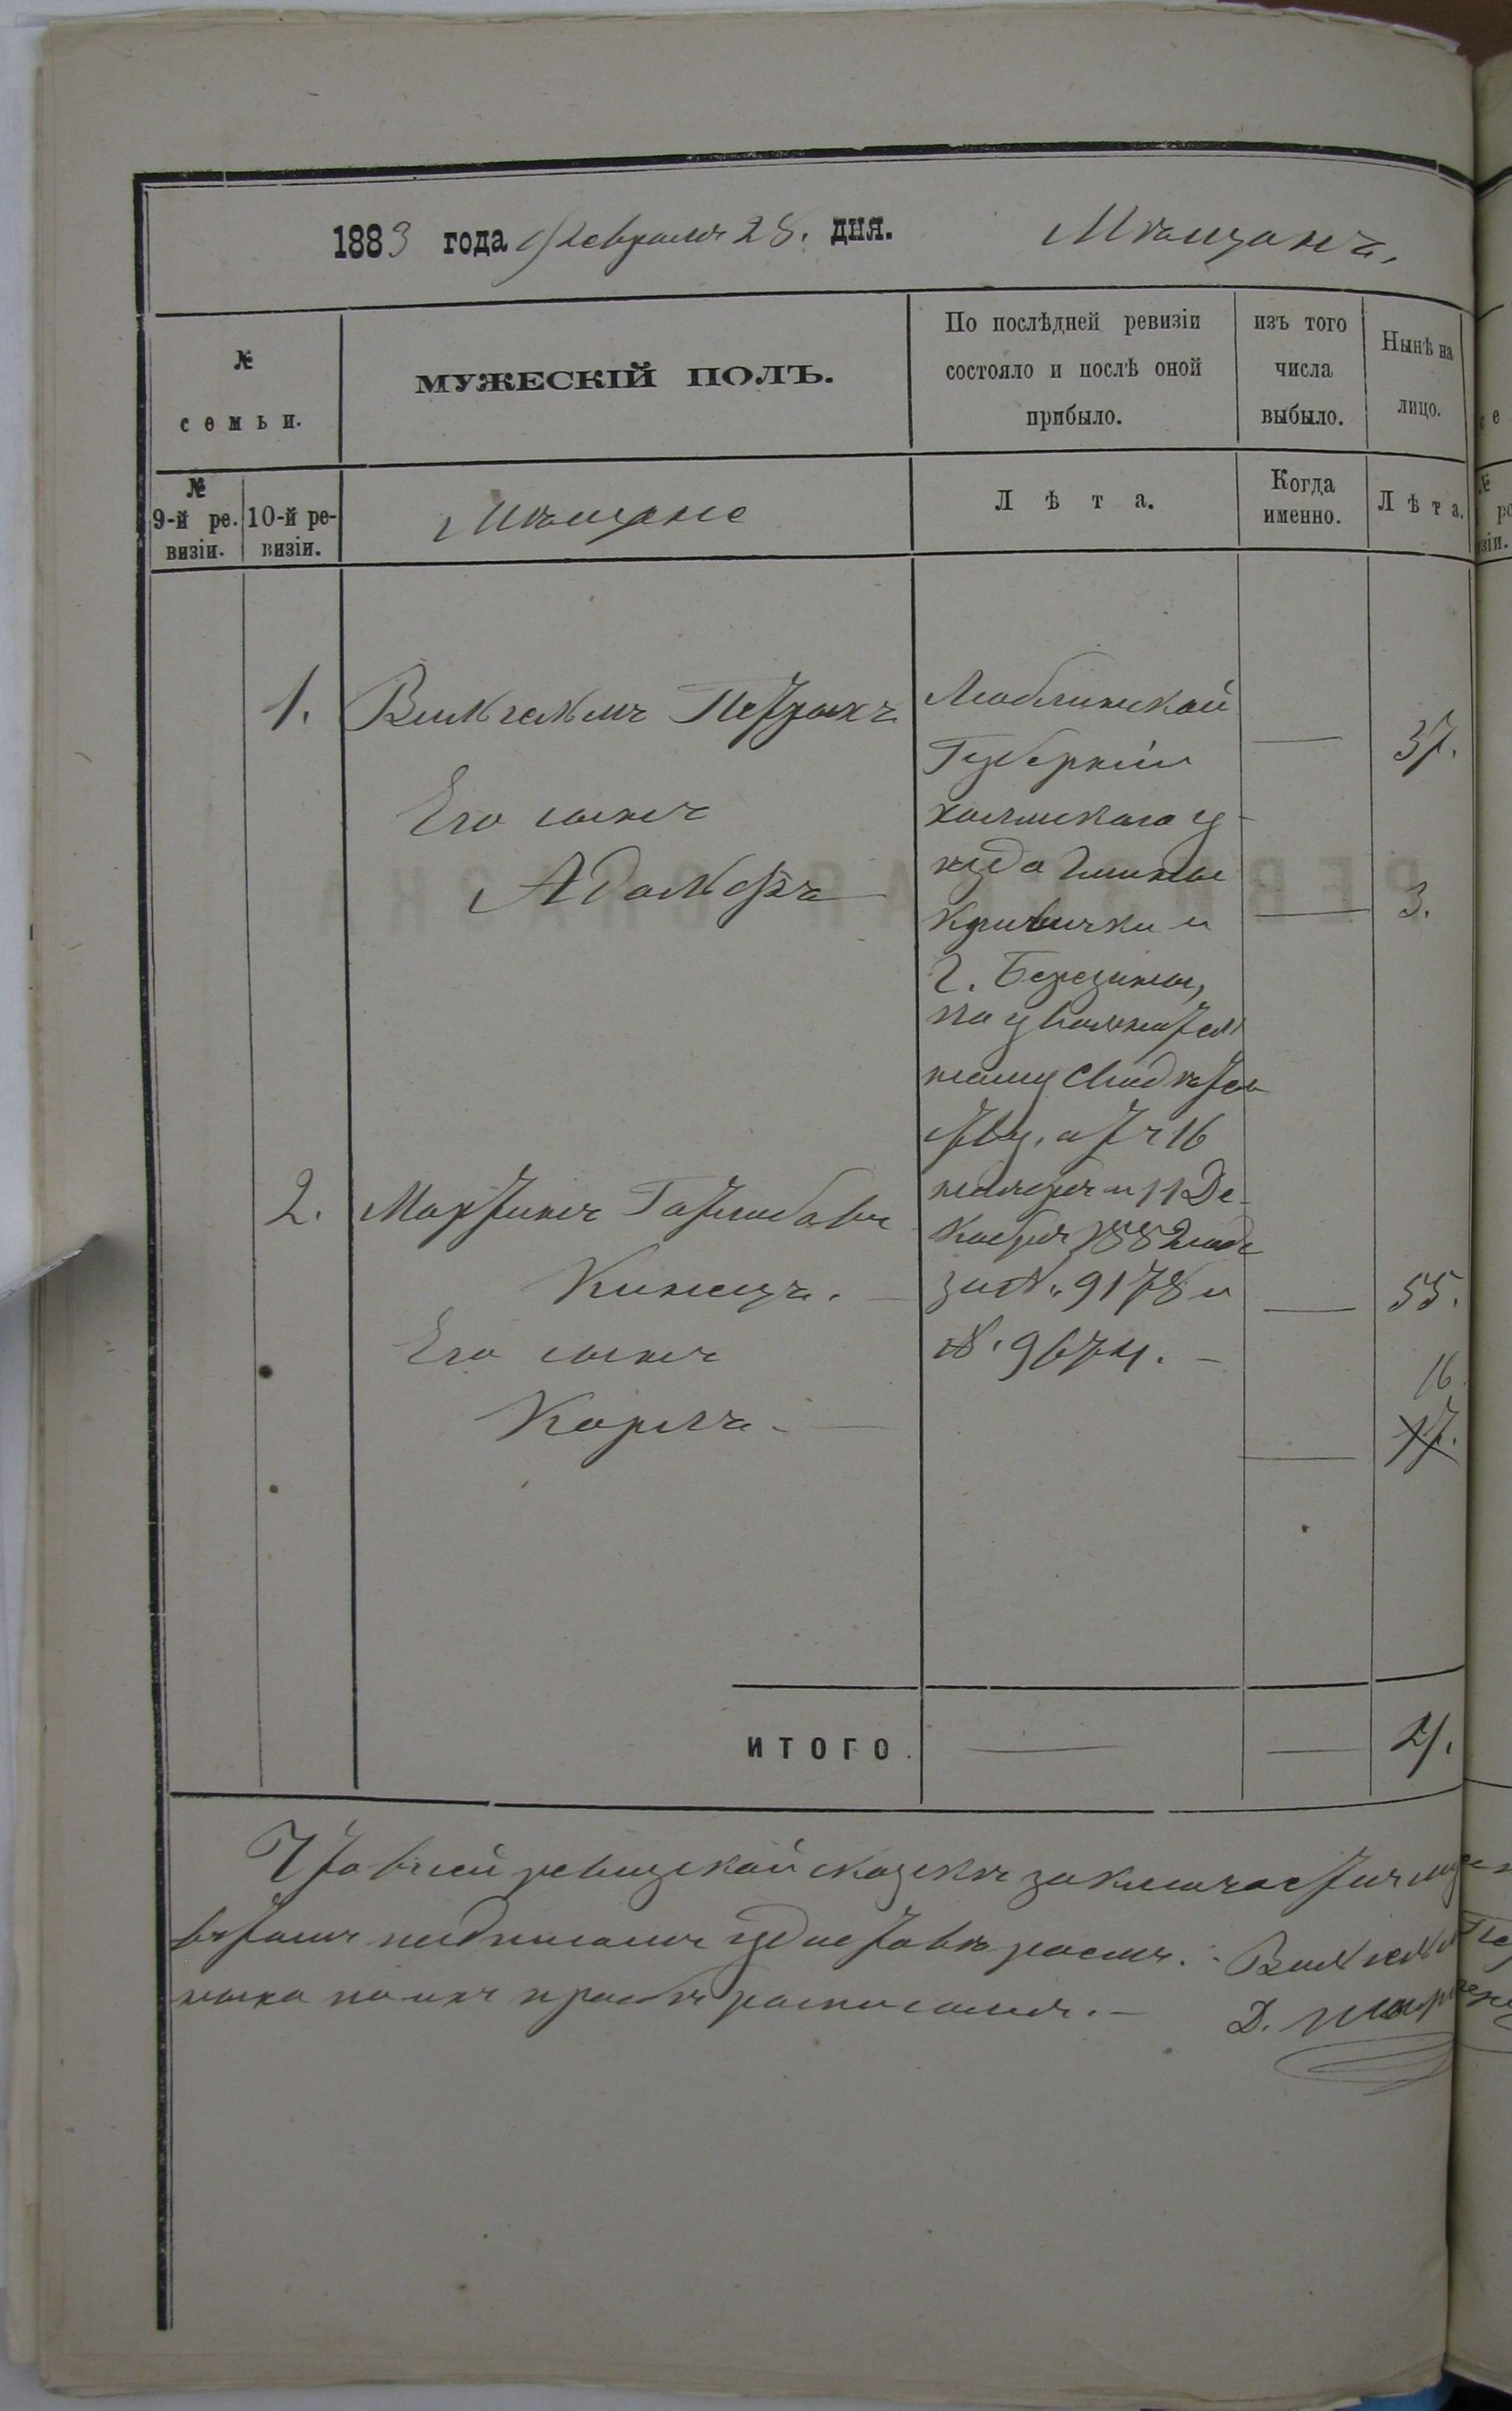 1883 года Февраля 28. дня. Мѣщанъ.
№ семьи.
МУЖЕСКІЙ ПОЛЪ.
По послѣдней ревизіи состояло и послѣ оной прибыло.
изъ того числа выбыло.
Нынѣ на лицо.
№ 9-й ре- визіи.
10-й ре- визіи.
Мѣщане
Лѣта.
Когда именно.
Лѣта.
1. Вильгельмъ Петрыкъ
Его сынъ
Адольфъ
Люблинской
Губерніи
холмскаго у-
ѣзда Гмины
Кривички и
г. Березины,
по увольнитель
ному свидѣтель
ству, отъ 16
ноября и 11 Де-
кабря 1882 года
за № 9178 и
№ 9674. —
37.
3.
2. Мартинъ Готлибовъ
Кинецъ.
Его сынъ
Карлъ.
55.
16
17.
ИТОГО.
4.
Что въ сей ревизской сказкѣ заключается
въ томъ подписомъ удостовѣряемъ. Вильгельм
по ихъ просьбѣ росписался. —
Д.